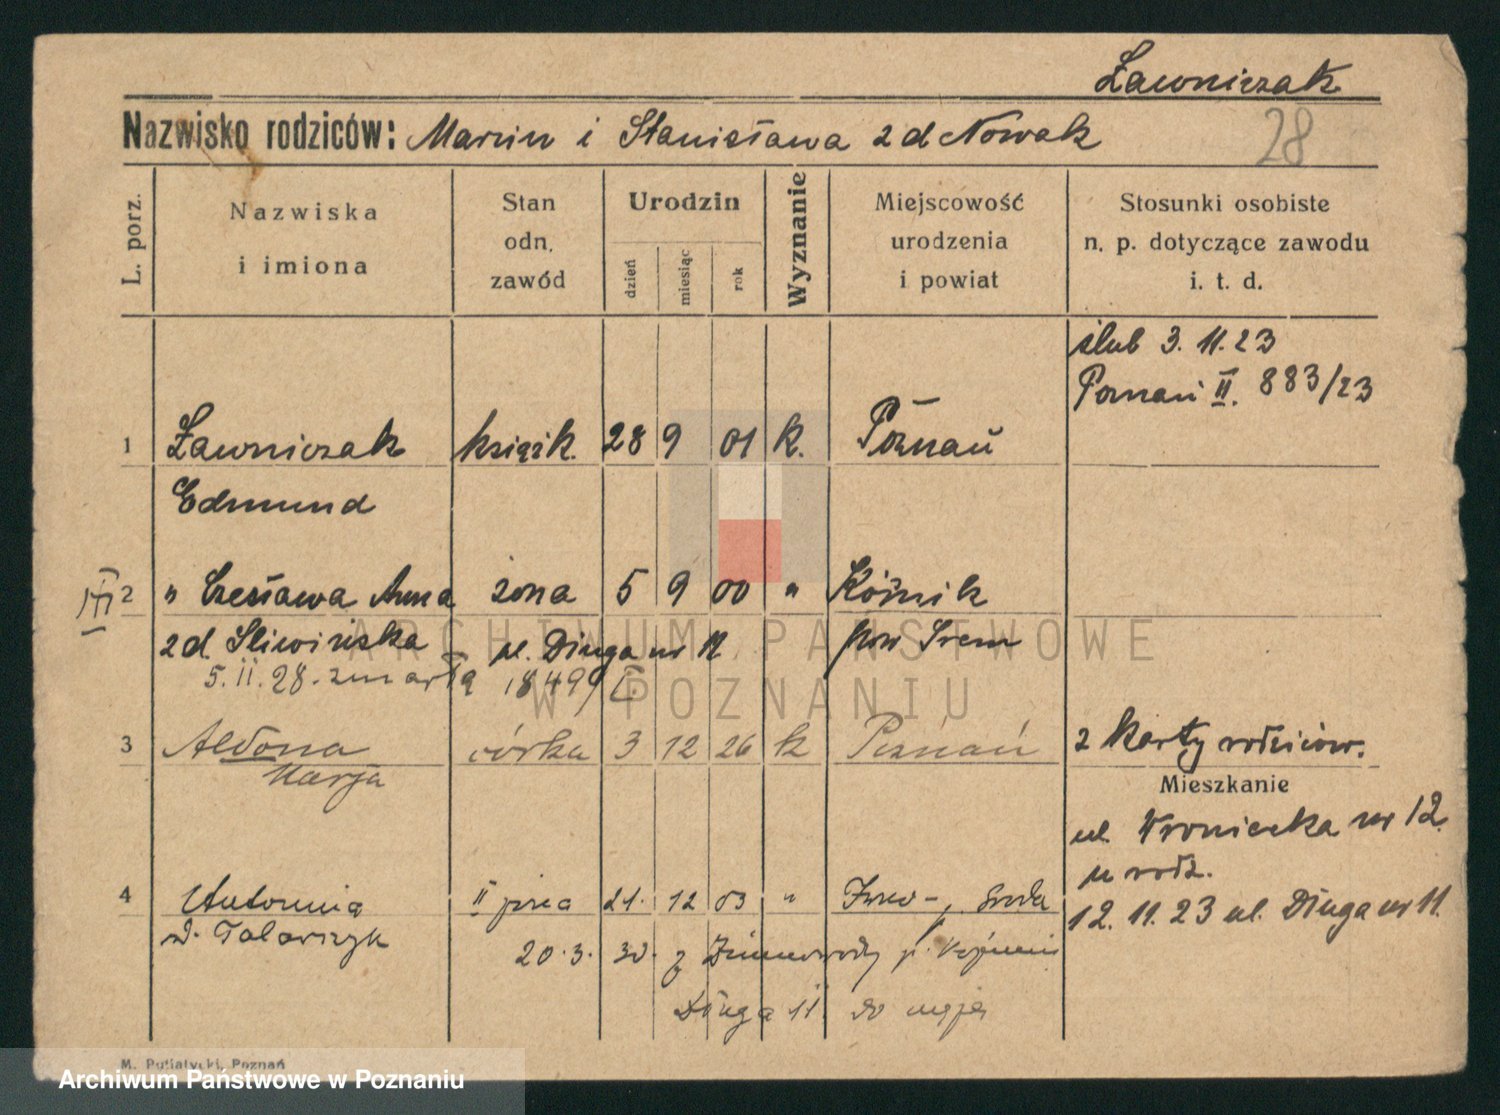 Ławniczak
Nazwisko rodziców: Marcin i Stanisława zd Nowak
28
L. porz.
Nazwiska i imiona
Stan odn. zawód
Urodzin
dzień
miesiąc
rok
Wyznanie
Miejscowość urodzenia i powiat
Stosunki osobiste n. p. dotyczące zawodu i. t. d.
ślub 3. 11. 23
Poznań II. 883/23
1 Ławniczak książk. 28 9 01 k. Poznań
Edmund
III 2 " Czesława Anna żona 5 9 00 " Kóźnik
zd. Śliwińska ul. Długa nr 12 pow Śrem
5. II. 28. zmarła 1849/
3 Aldona córka 3 12 26 k Poznań z karty rodziców.
Marja
Mieszkanie
ul. Wroniecka nr 12.
u rodz.
12. 11. 23 ul. Długa nr 11.
4 Antonina II 21. 12 03 " Środa
d. Tolarczyk
20. 3. 30. z
Długa 11 do męża
M. Putiatycki, Poznań
ARCHIWUM PAŃSTWOWE
W POZNANIU
Archiwum Państwowe w Poznaniu